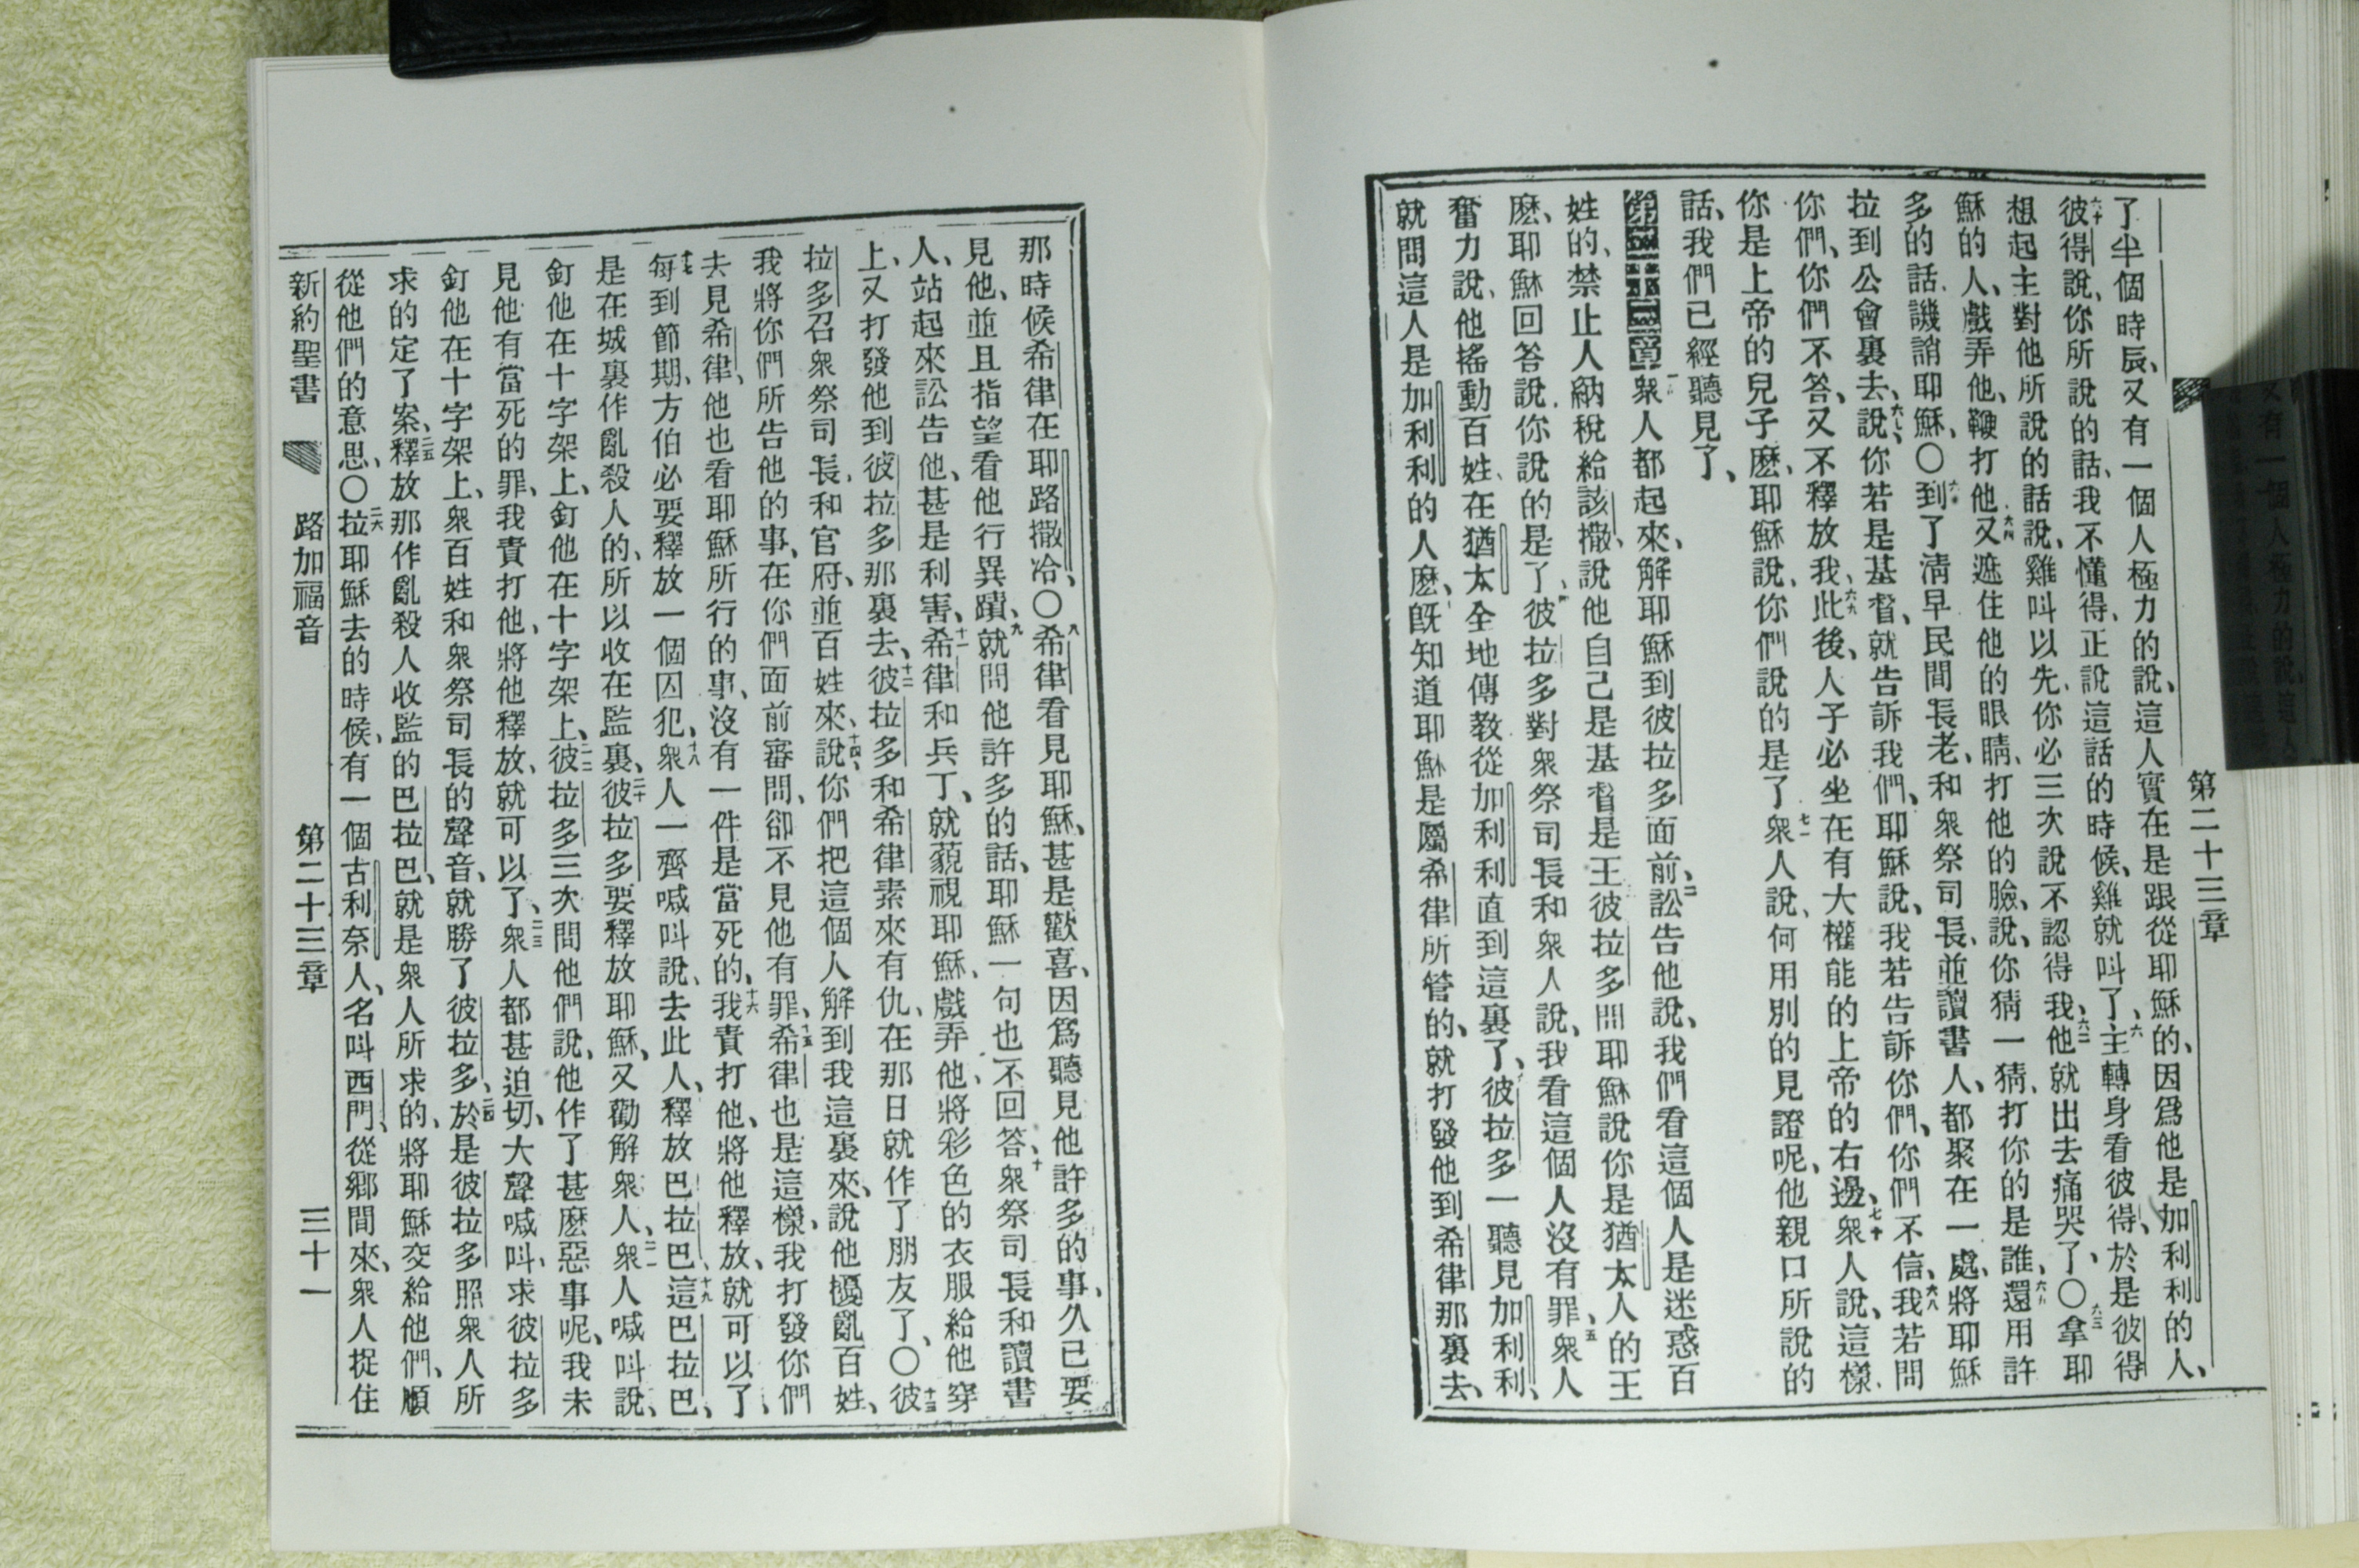 第二十三章
了半個時辰、又有一個人極力的說、這人實在是跟從耶穌的、因爲他是加利利的人、
六十彼得說、你所說的話、我不懂得、正說這話的時候、雞就叫了、六一主轉身看彼得、於是彼得
想起主對他所說的話說、雞叫以先、你必三次說不認得我、六二他就出去痛哭了、〇六三拿耶
穌的人、戲弄他、鞭打他、六四又遮住他的眼睛、打他的臉、說、你猜一猜、打你的是誰、六五還用許
多的話、譏誚耶穌、〇六六到了清早民間長老、和衆祭司長、並讀書人、都聚在一處、將耶穌
拉到公會裏去、六七說、你若是基督、就告訴我們、耶穌說、我若告訴你們、你們不信、六八我若問
你們、你們不答、又不釋放我、六九此後、人子必坐在有大權能的上帝的右邊、七十衆人說、這樣
你是上帝的兒子麽、耶穌說、你們說的是了、七一衆人說、何用別的見證呢、他親口所說的
話、我們已經聽見了、
第二十三章 一衆人都起來、解耶穌到彼拉多面前、二訟告他說、我們看這個人是迷惑百
姓的、禁止人納稅給該撒、說他自己是基督是王彼拉多問耶穌說你是猶太人的王
麽、耶穌回答說、你說的是了、四彼拉多對衆祭司長和衆人說、我看這個人沒有罪、五衆人
奮力說、他搖動百姓、在猶太全地傳教從加利利直到這裏了、彼拉多一聽見加利利、
就問這人是加利利的人麽、旣知道耶穌是屬希律所管的、就打發他到希律那裏去、
那時候希律在耶路撒冷、〇八希律看見耶穌、甚是歡喜、因爲聽見他許多的事、久已要
見他、並且指望看他行異蹟、九就問他許多的話、耶穌一句也不回答、十衆祭司長和讀書
人、站起來訟告他、甚是利害、十一希律和兵丁、就藐視耶穌、戲弄他、將彩色的衣服給他穿
上、又打發他到彼拉多那裏去、十二彼拉多和希律素來有仇、在那日就作了朋友了、〇十三彼
拉多召衆祭司長、和官府、並百姓來、十四說、你們把這個人解到我這裏來、說他擾亂百姓、
我將你們所告他的事、在你們面前審問、卻不見他有罪、十五希律也是這樣、我打發你們
去見希律、他也看耶穌所行的事、沒有一件是當死的、十六我責打他、將他釋放、就可以了、
十七每到節期、方伯必要釋放一個囚犯、十八衆人一齊喊叫說、去此人、釋放巴拉巴、十九這巴拉巴、
是在城裏作亂殺人的、所以收在監裏、二十彼拉多要釋放耶穌、又勸解衆人、二一衆人喊叫說、
釘他在十字架上、釘他在十字架上、二二彼拉多三次問他們說、他作了甚麽惡事呢、我未
見他有當死的罪、我責打他、將他釋放、就可以了、二三衆人都甚迫切、大聲喊叫、求彼拉多
釘他在十字架上、衆百姓和衆祭司長的聲音、就勝了彼拉多、二四於是彼拉多照衆人所
求的定了案、二五釋放那作亂殺人收監的巴拉巴、就是衆人所求的、將耶穌交給他們、順
從他們的意思、〇二六拉耶穌去的時候、有一個古利奈人、名叫西門、從鄉間來、衆人捉住
新約聖書 路加福音 第二十三章 三十一